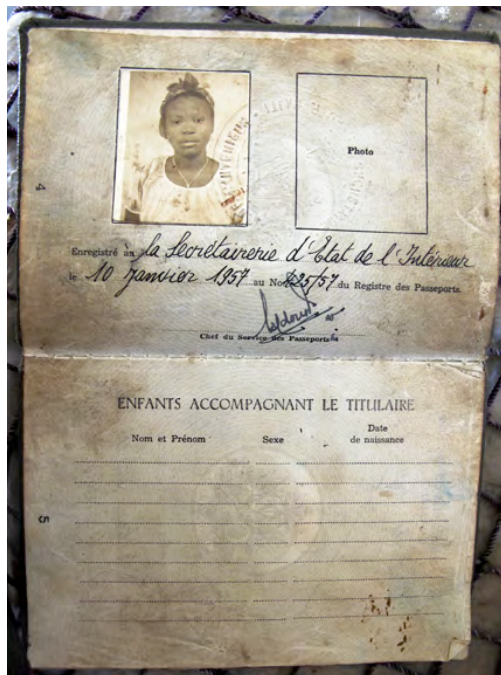 Photo
4
Enregistré à la Secrétairerie d'Etat de l'Intérieur
le 10 Janvier 1957 au No 225/57 du Registre des Passeports
Chef du Service des Passeports
ENFANTS ACCOMPAGNANT LE TITULAIRE
Nom et Prénom Sexe Date de naissance
5